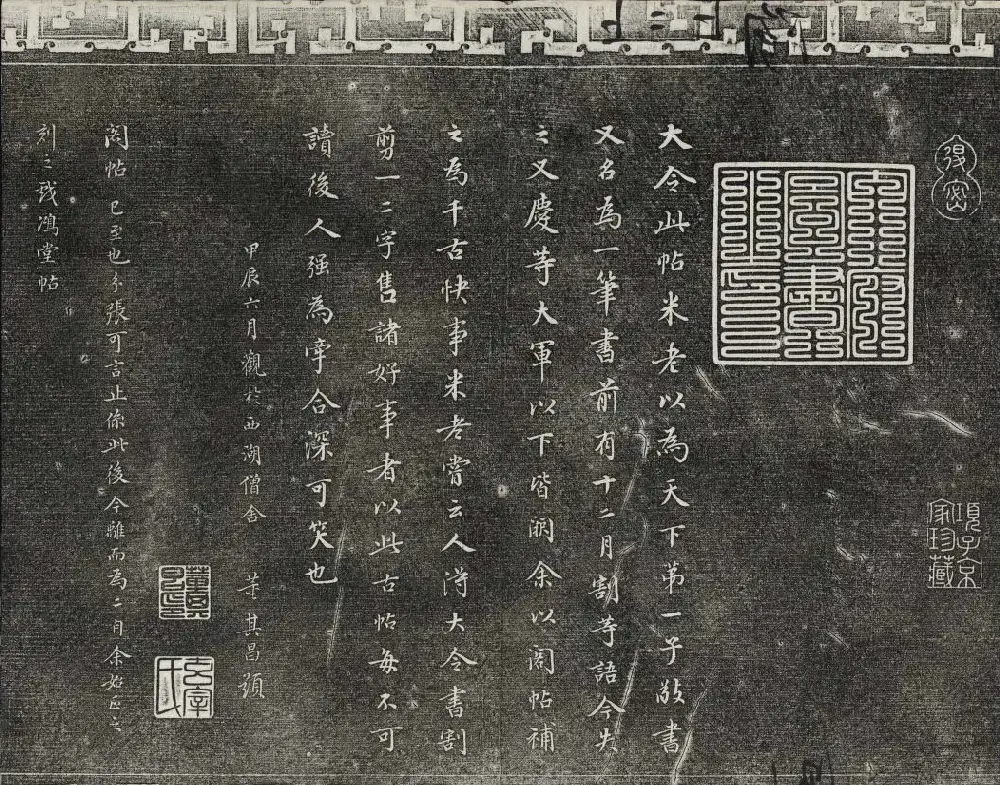 大令此帖米老以為天下第一子敬書
又名為一筆書前有十二月割等語今失
之又慶等大軍以下皆闕余以閣帖補
之為千古快事米老嘗云人得大令書割
剪一二字售諸好事者以此古帖每不可
讀後人強為牽合深可笑也
甲辰六月觀於西湖僧舍 董其昌題
閣帖 已至也分張可言止係此後今離而為二月余始正之
刻之戲鴻堂帖
項子京
家珍藏